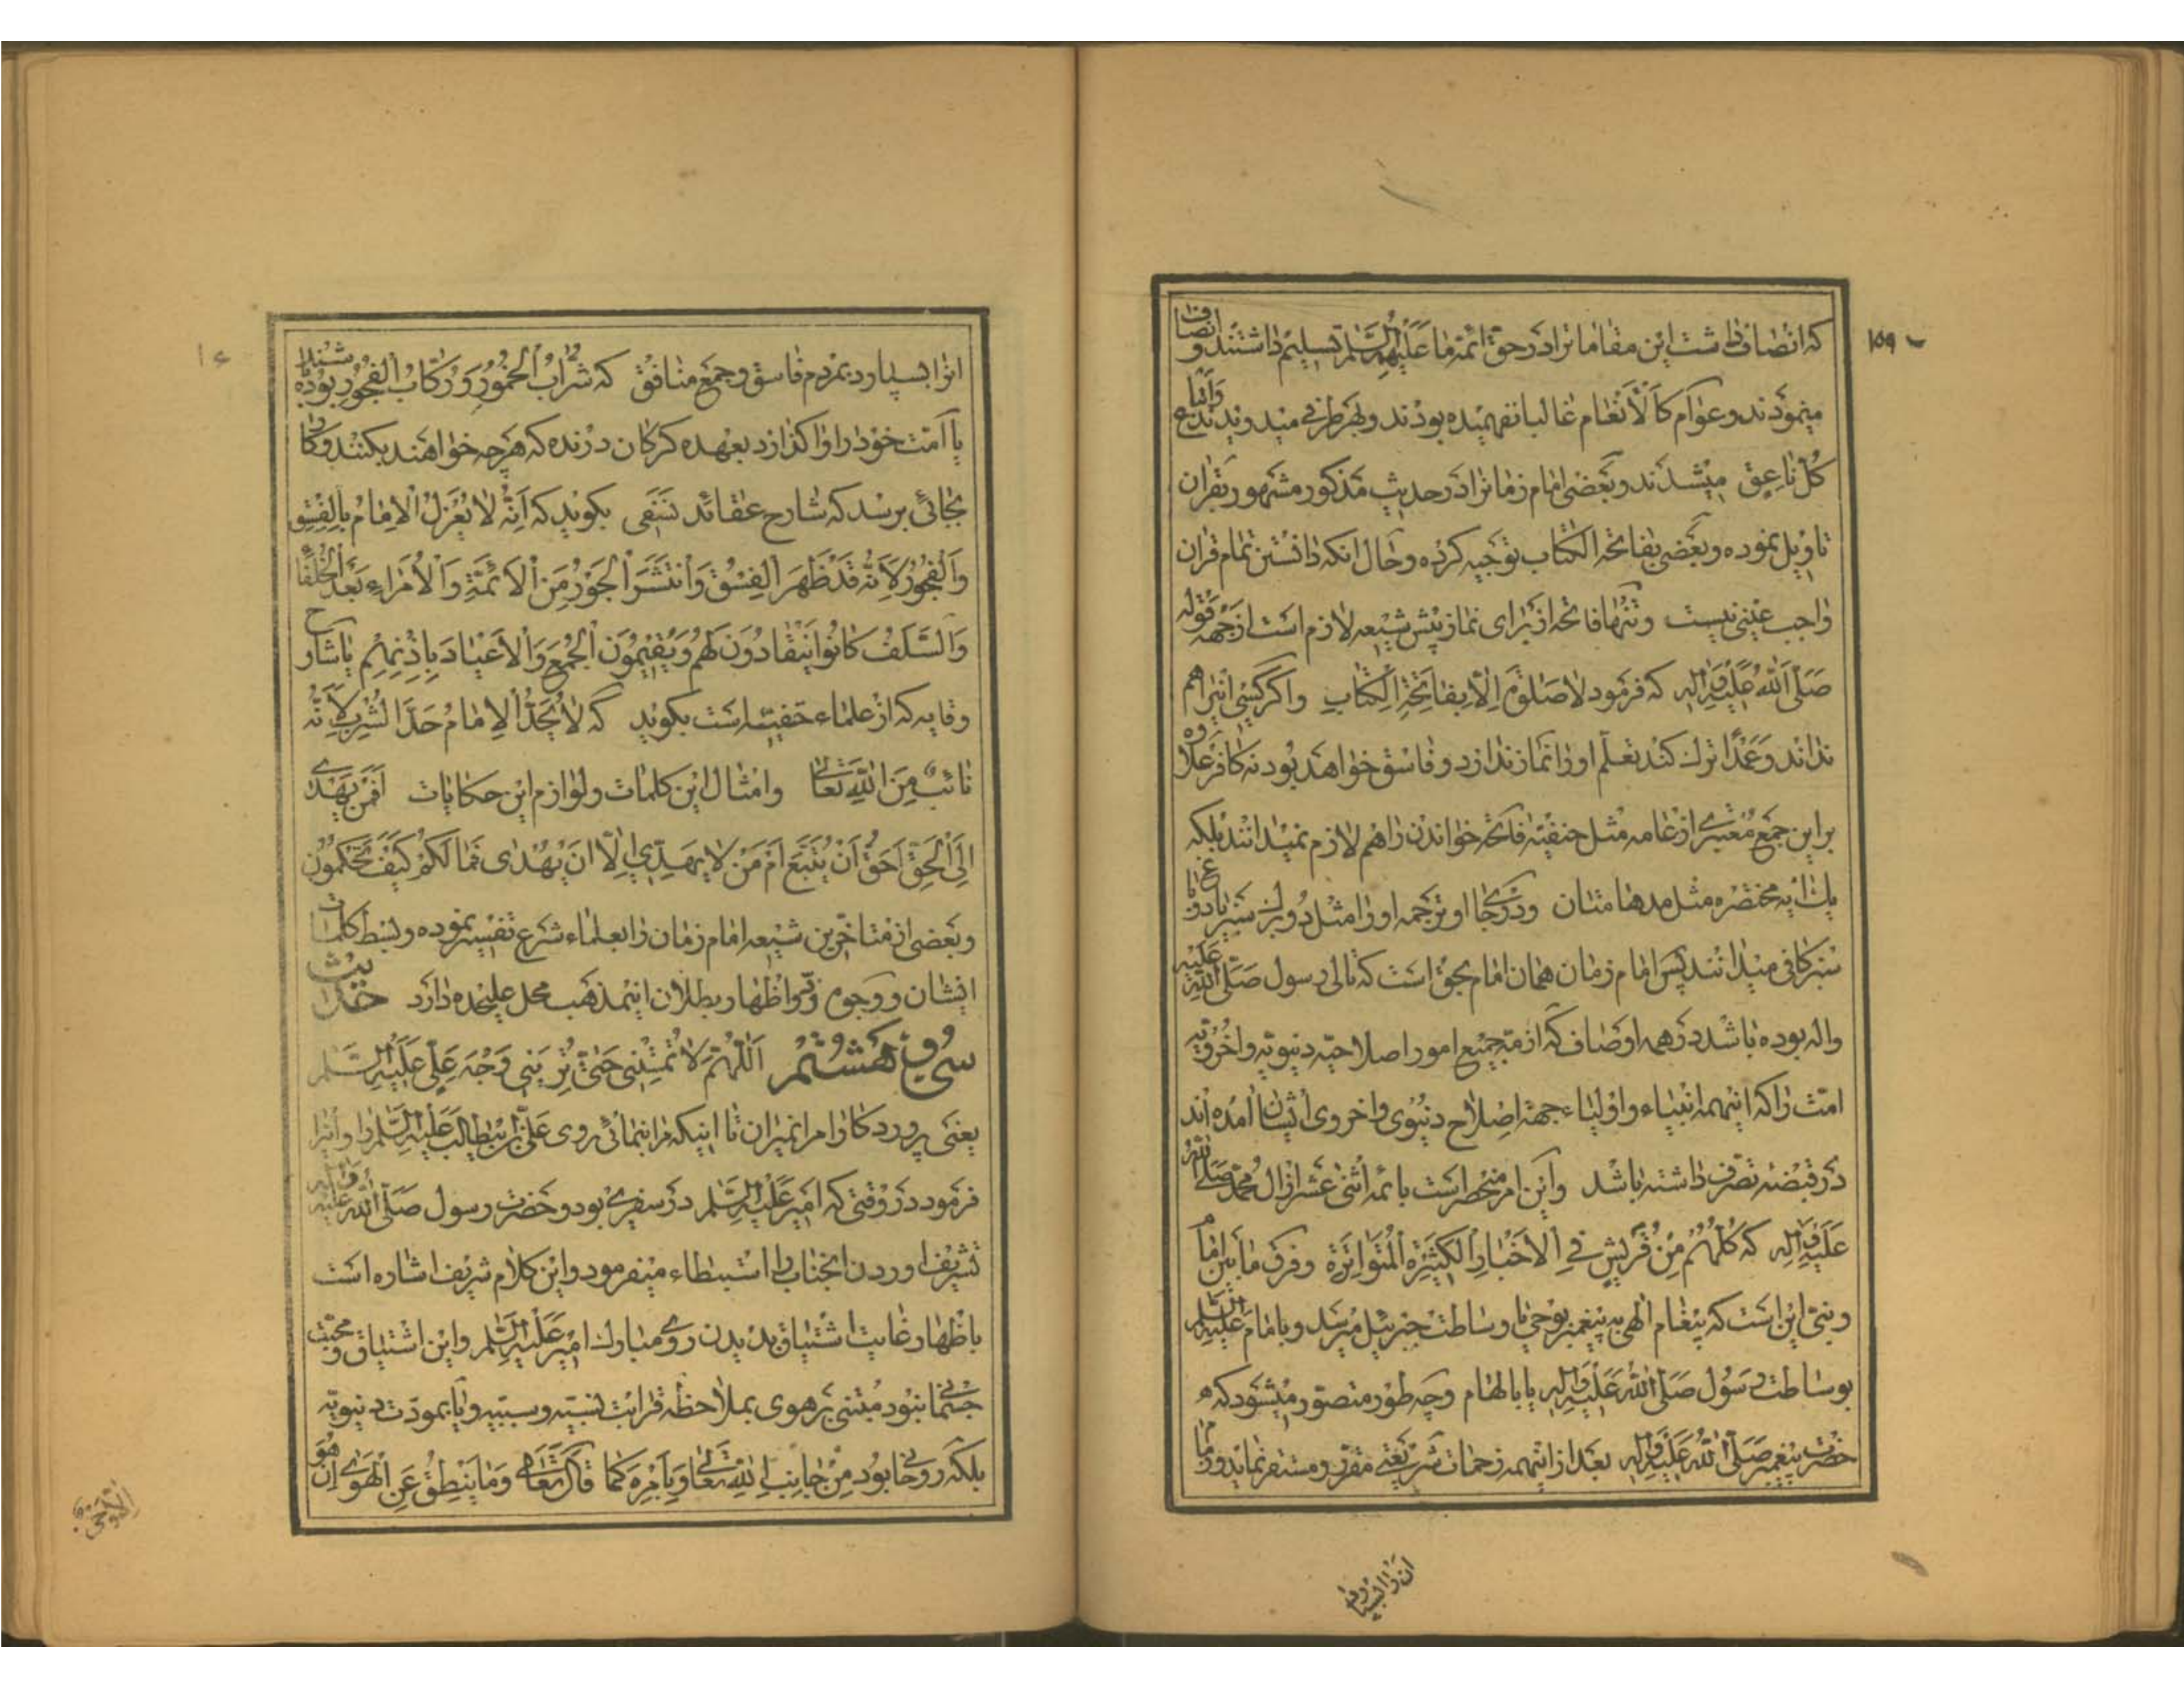 ۱۵۹
که انصاف داشت این مقاماترا در حق ائمه ما علیهم السلام تسلیم داشتند و انصاف
مینمودند و عوام کالانعام غالبا نفهمیده بودند و بهر طرفی میدویدند و اتباع
کل ناعق میشدند و بعضی امام زمانرا در حدیث مذکور مشهور بقران
تاویل نموده و بعضی بفاتحه الکتاب توجیه کرده و حال انکه دانستن تمام قران
واجب عینی نیست و تنها فاتحه از برای نماز پیش شیعه لازم است از جهه قوله
صَلَّی اللهُ عَلَیْهِ وَاٰلِهِ که فرمود لا صَلوٰةَ اِلّا بِفاتِحَةِ الکِتابِ و اگر کسی انرا هم
نداند و عمدًا ترک کند تعلّم او را نماز ندارد و فاسق خواهد بود نه کافر علاوه
بر این جمع مُعتبری از عامه مثل حنفیّه فاتحه خواندن را هم لازم نمیدانند بلکه
یک ایه مختصره مثل مدهامتان و در کجا او ترجمه او را مثل دو برک سبز یا دو باغ
سبز کافی میدانند پس امام زمان همان امام بحق است که تالی رسول صَلَّی اللهُ عَلَیْهِ
واله بوده باشد در همه اوصاف که ازمّهٔ جمیع امور اصلاحیّه دنیویّه و اخرویّه
امّت را که اینهمه انبیاء و اولیاء جهة اصلاح دنیوی و اخروی ایشان امده اند
در قبضهٔ تصرف داشته باشد و این امر منحصر است بائمه اثنی عشر از ال محمد صلی الله
عَلَیْهِ وَاٰلِهِ که کُلُّهُم مِنْ قُرَیْشٍ فِی الاَخْبارِ الکَثیرَةِ المُتَواتِرَة و فرق مابین امام
و نبی این است که پیغام الهی به پیغمبر بوحی با وساطت جبرئیل میرسد و بامام عَلَیْهِ السَّلام
بوساطت رسُول صَلَّی اللهُ عَلَیْهِ وَاٰلِهِ یا بالهام و چه طور متصوّر میشود که
حضرت پیغمبر صَلَّی اللهُ عَلَیْهِ وَاٰلِهِ بعد از اینهمه زحمات شریعتی مقرّر و مستقر نماید و زمام
ان را بسپارد
انرا بسپارد بمردم فاسق و جمع منافق که شُرّابُ الخُمُورِ وَ رُکّابُ الفُجُورِ بوده باشند
یا امّت خود را واکذارد بعهده کرکان درنده که هرچه خواهند بکنند و کار
بجائی برسد که شارح عقائد نسفی بکوید که اِنَّهُ لا یُعْزَلُ الاِمامُ بِالفِسْقِ
وَالفُجُورِ لِاَنَّهُ قَدْ ظَهَرَ الفِسْقُ وَانْتَشَرَ الجَوْرُ مِنَ الاَئِمَّةِ وَالاُمَراءِ بَعْدَ الخُلَفاءِ
وَالسَّلَفُ کانُوا یَنْقادُونَ لَهُمْ وَیُقیمُونَ الجُمَعَ وَالاَعْیادَ بِاِذْنِهِم یا شارح
وقایه که از علماء حنفیّه است بکوید که لا یُحَدُّ الاِمامُ حَدَّ الشُّرْبِ لِاَنَّهُ
نائِبٌ مِنَ اللهِ تَعالیٰ و امثال این کلمات و لوازم این حکایات اَفَمَنْ یَهْدی
اِلَی الحَقِّ اَحَقُّ اَنْ یُتَّبَعَ اَمْ مَنْ لا یَهِدّی اِلّا اَنْ یُهْدیٰ فَما لَکُمْ کَیْفَ تَحْکُمُونَ
و بعضی از متاخّرین شیعه امام زمان را بعلماء شرع تفسیر نموده و بسط کلمات
ایشان و وجوه ردّ و اظهار بطلان اینمذهب محل علیحده دارد حدیث
سی و هشتم اَللّهُمَّ لا تُمِتْنی حَتّیٰ تُرِیَنی وَجْهَ عَلِیٍّ عَلَیْهِ السَّلام
یعنی پروردکارا مرا نمیران تا اینکه مرا بنمائی روی علیّ بن ابیطالب عَلَیْهِ السَّلام را و انرا
فرمود در وقتی که امیر عَلَیْهِ السَّلام در سفری بود و حضرت رسول صَلَّی اللهُ عَلَیْهِ وَاٰلِهِ
تشریف اوردن انجناب را استبطاء میفرمود و این کلام شریف اشاره است
باظهار غایت اشتیاق بدیدن روی مبارک امیر عَلَیْهِ السَّلام و این اشتیاق و محبّت
جسمانی نبود مبتنی بر هوی بملاحظه قرابت نسبیّه و سببیه و یا بمودّت دنیویّه
بلکه روحانی بود مِنْ جانِبِ اللهِ تَعالیٰ وَ بِاَمْرِهِ کَما قالَ تَعالیٰ وَما یَنْطِقُ عَنِ الهَویٰ اِنْ هُوَ
اِلّا وَحْیٌ